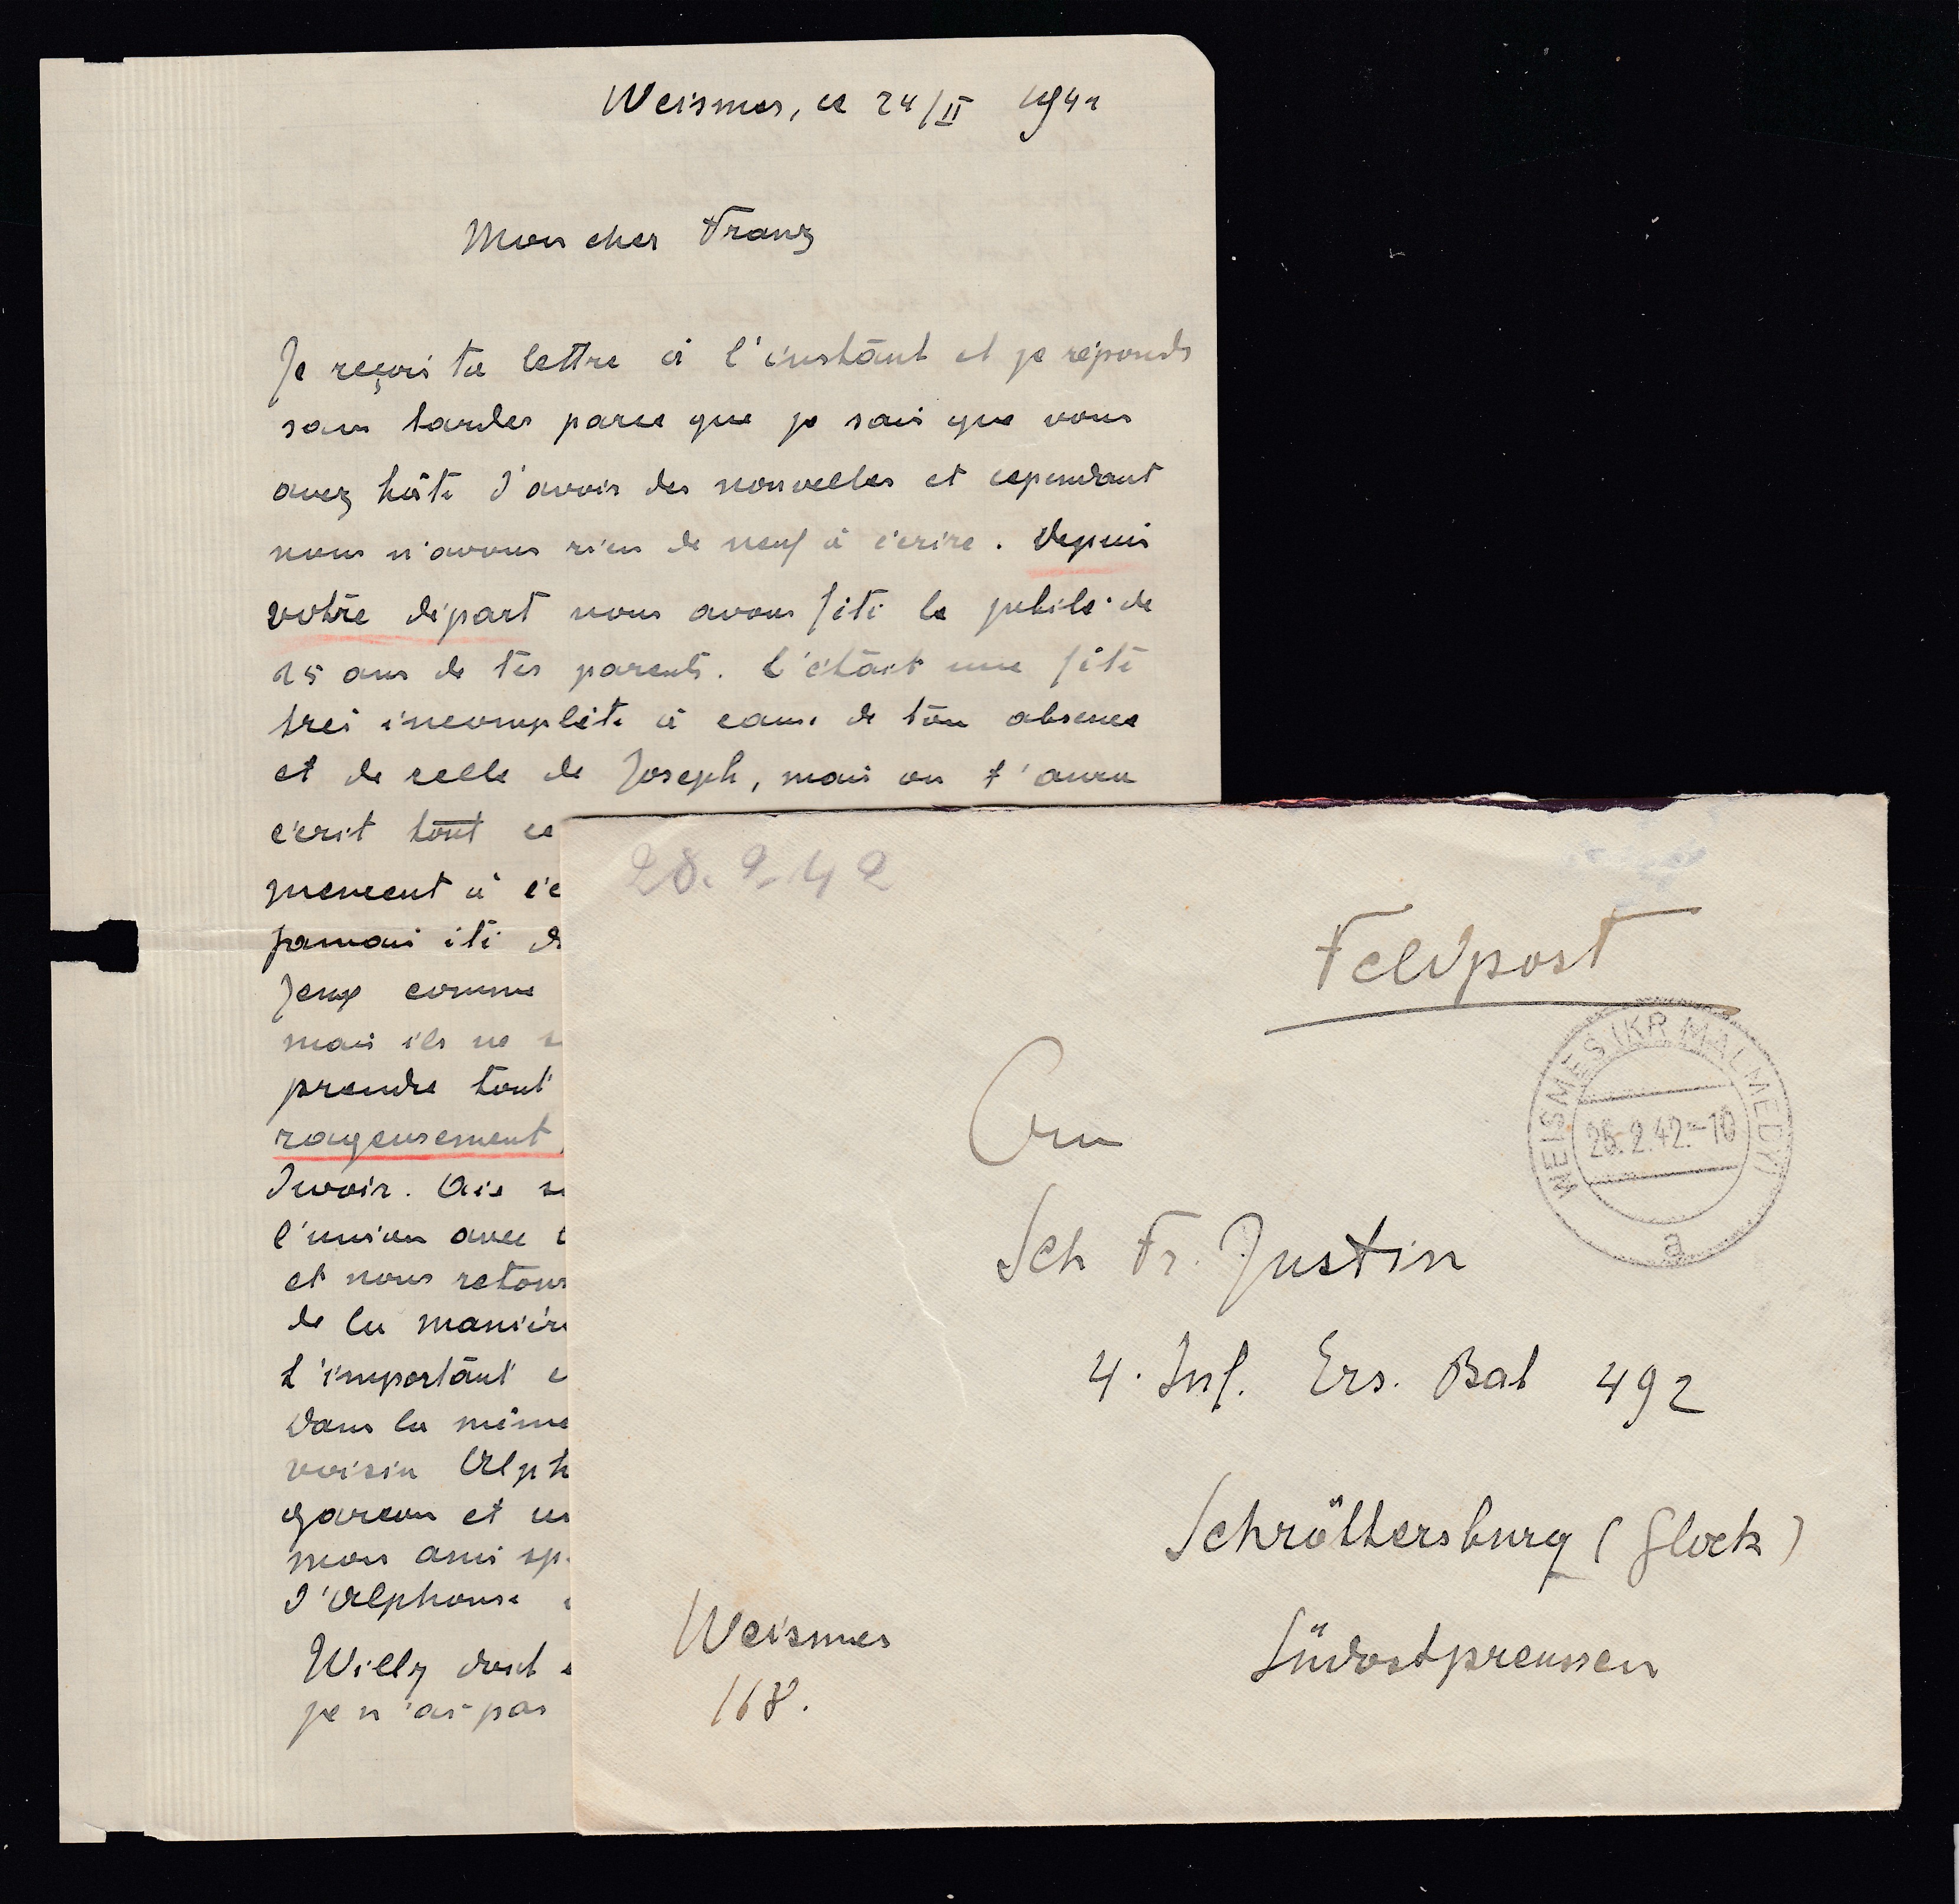 Weismes, ce 24/II 1942
Mon cher Franz
Je reçois ta lettre à l'instant et je réponds
sans tarder parce que je sais que vous
avez hâte d'avoir des nouvelles et cependant
nous n'avons rien de neuf à écrire. Depuis
votre départ nous avons fêté le jubilé de
25 ans de tes parents. C'était une fête
très incomplète à cause de ton absence
et de celle de Joseph, mais on t'aura
écrit tout ce
mencent à
jamais été
Jeux comme
mais ils ne
prendre tout
rageusement
Devoir.
l'union avec
et nous
de la manière
L'important
Dans la même
voisin
garçon et
mon ami
d'Alphonse
Willy dont
je n'ai pas
28.2.42
Feldpost
WEISMES (KR MALMEDY)
26.2.42.-10
a
An
Sch Fr. Justin
4. Inf. Ers. Bat 492
Schröttersburg (Plock)
Südostpreussen
Weismes
168.